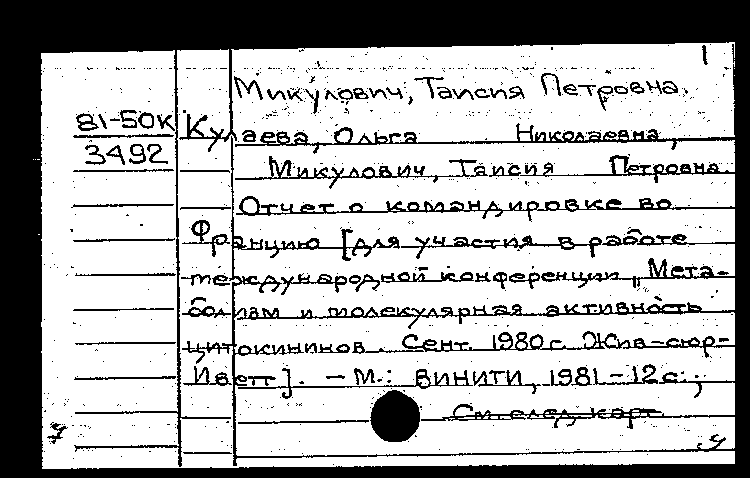 1
Микулович, Таисия Петровна.
81-50К Кулаева, Ольга Николаевна,
3492 Микулович, Таисия Петровна.
Отчет о командировке во
Францию [для участия в работе
международной конференции „Мета-
болизм и молекулярная активность
цитокининов. Сент. 1980 г. Жив-сюр-
Иветт]. – М.: ВИНИТИ, 1981 – 12 с.;
См. след. карт